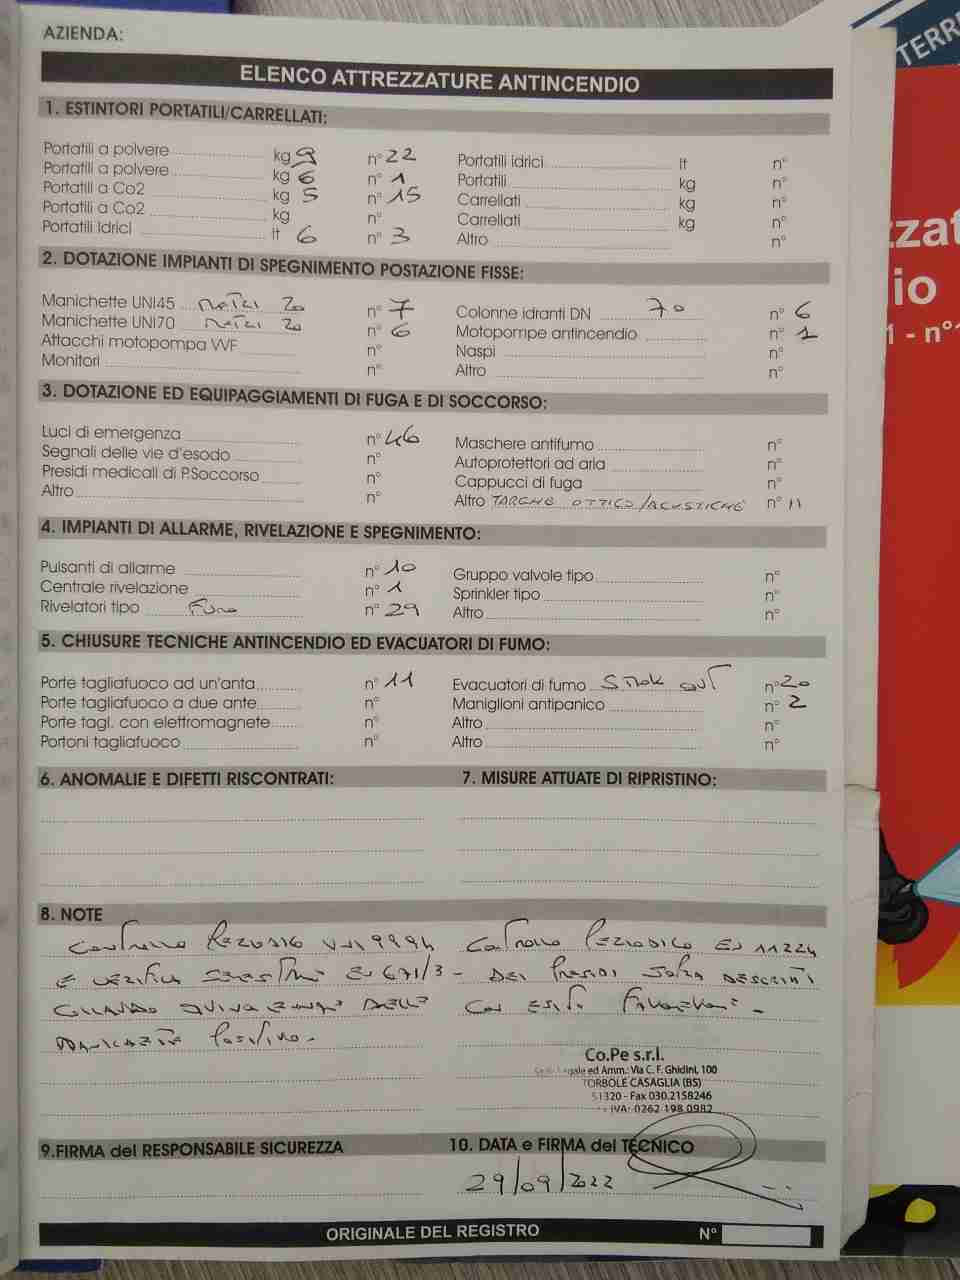 AZIENDA:
ELENCO ATTREZZATURE ANTINCENDIO
1. ESTINTORI PORTATILI/CARRELLATI:
Portatili a polvere kg 9 n° 22 Portatili idrici lt n°
Portatili a polvere kg 6 n° 1 Portatili kg n°
Portatili a Co2 kg 5 n° 15 Carrellati kg n°
Portatili a Co2 kg n° Carrellati kg n°
Portatili Idrici lt 6 n° 3 Altro n°
2. DOTAZIONE IMPIANTI DI SPEGNIMENTO POSTAZIONE FISSE:
Manichette UNI45 METRI 20 n° 7 Colonne idranti DN 70 n° 6
Manichette UNI70 METRI 20 n° 6 Motopompe antincendio n° 1
Attacchi motopompa VVF n° Naspi n°
Monitori n° Altro n°
3. DOTAZIONE ED EQUIPAGGIAMENTI DI FUGA E DI SOCCORSO:
Luci di emergenza n° 46 Maschere antifumo n°
Segnali delle vie d'esodo n° Autoprotettori ad aria n°
Presidi medicali di P.Soccorso n° Cappucci di fuga n°
Altro n° Altro TARGHE OTTICO/ACUSTICHE n° 11
4. IMPIANTI DI ALLARME, RIVELAZIONE E SPEGNIMENTO:
Pulsanti di allarme n° 10 Gruppo valvole tipo n°
Centrale rivelazione n° 1 Sprinkler tipo n°
Rivelatori tipo Fumo n° 29 Altro n°
5. CHIUSURE TECNICHE ANTINCENDIO ED EVACUATORI DI FUMO:
Porte tagliafuoco ad un'anta n° 11 Evacuatori di fumo SMOK OUT n° 20
Porte tagliafuoco a due ante n° Maniglioni antipanico n° 2
Porte tagl. con elettromagnete n° Altro n°
Portoni tagliafuoco n° Altro n°
6. ANOMALIE E DIFETTI RISCONTRATI: 7. MISURE ATTUATE DI RIPRISTINO:
8. NOTE
Controllo Periodico UNI 9994 Controllo Periodico EN 11224
E verifica semestrale EN 671/3 - DEI Presidi sopra DESCRITTI
COLLAUDO QUINQUENNALE DELLE con esito Favorevole -
MANICHETTE Positivo -
Co.Pe s.r.l.
Legale ed Amm.: Via C. F. Ghidini, 100
TORBOLE CASAGLIA (BS)
51320 - Fax 030.2158246
IVA: 0262 198 0982
9.FIRMA del RESPONSABILE SICUREZZA 10. DATA e FIRMA del TECNICO
29/09/2022
ORIGINALE DEL REGISTRO N°
TERR
zzat
io
1 - n°